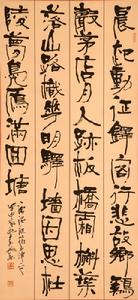 晨起動征鐸客行悲故鄉雞
聲茅店月人跡板橋霜槲葉
落山路枳花明驛牆因思杜
陵夢鳧雁滿回塘